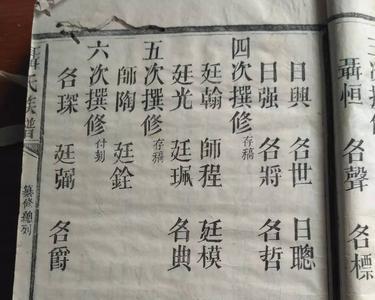 聶恒 名聲 名標
日興 名世 日聰
日强 名將 名哲
四次撰修存稿
廷翰 師程 廷模
廷光 廷珮 名典
五次撰修存稿
師陶 廷銓
六次撰修付刻
名琛 廷弼 名爵
氏族譜
纂修總列